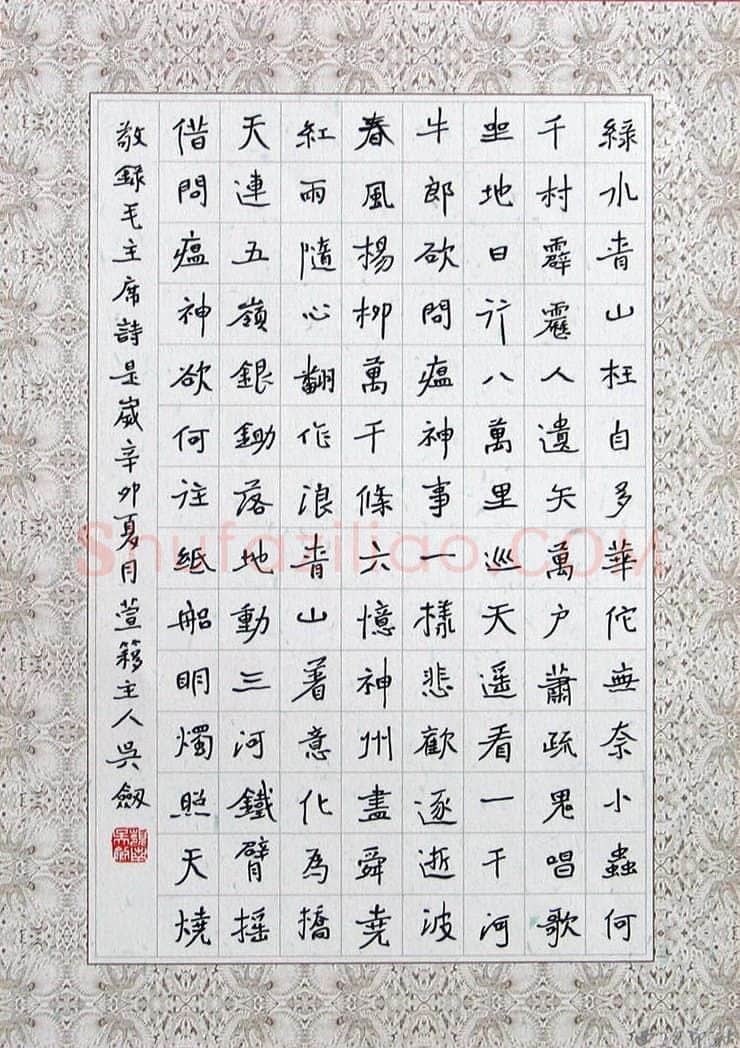 綠水青山枉自多華佗無奈小蟲何
千村霹靂人遺矢萬户蕭疏鬼唱歌
坐地日行八萬里巡天遥看一千河
牛郎欲問瘟神事一樣悲歡逐逝波
春風楊柳萬千條六憶神州盡舜堯
紅雨隨心翻作浪青山著意化為橋
天連五嶺銀鋤落地動三河鐵臂摇
借問瘟神欲何往紙船明燭照天燒
敬録毛主席詩是歲辛卯夏月萱簃主人吳劍
Shufaziliao.COM